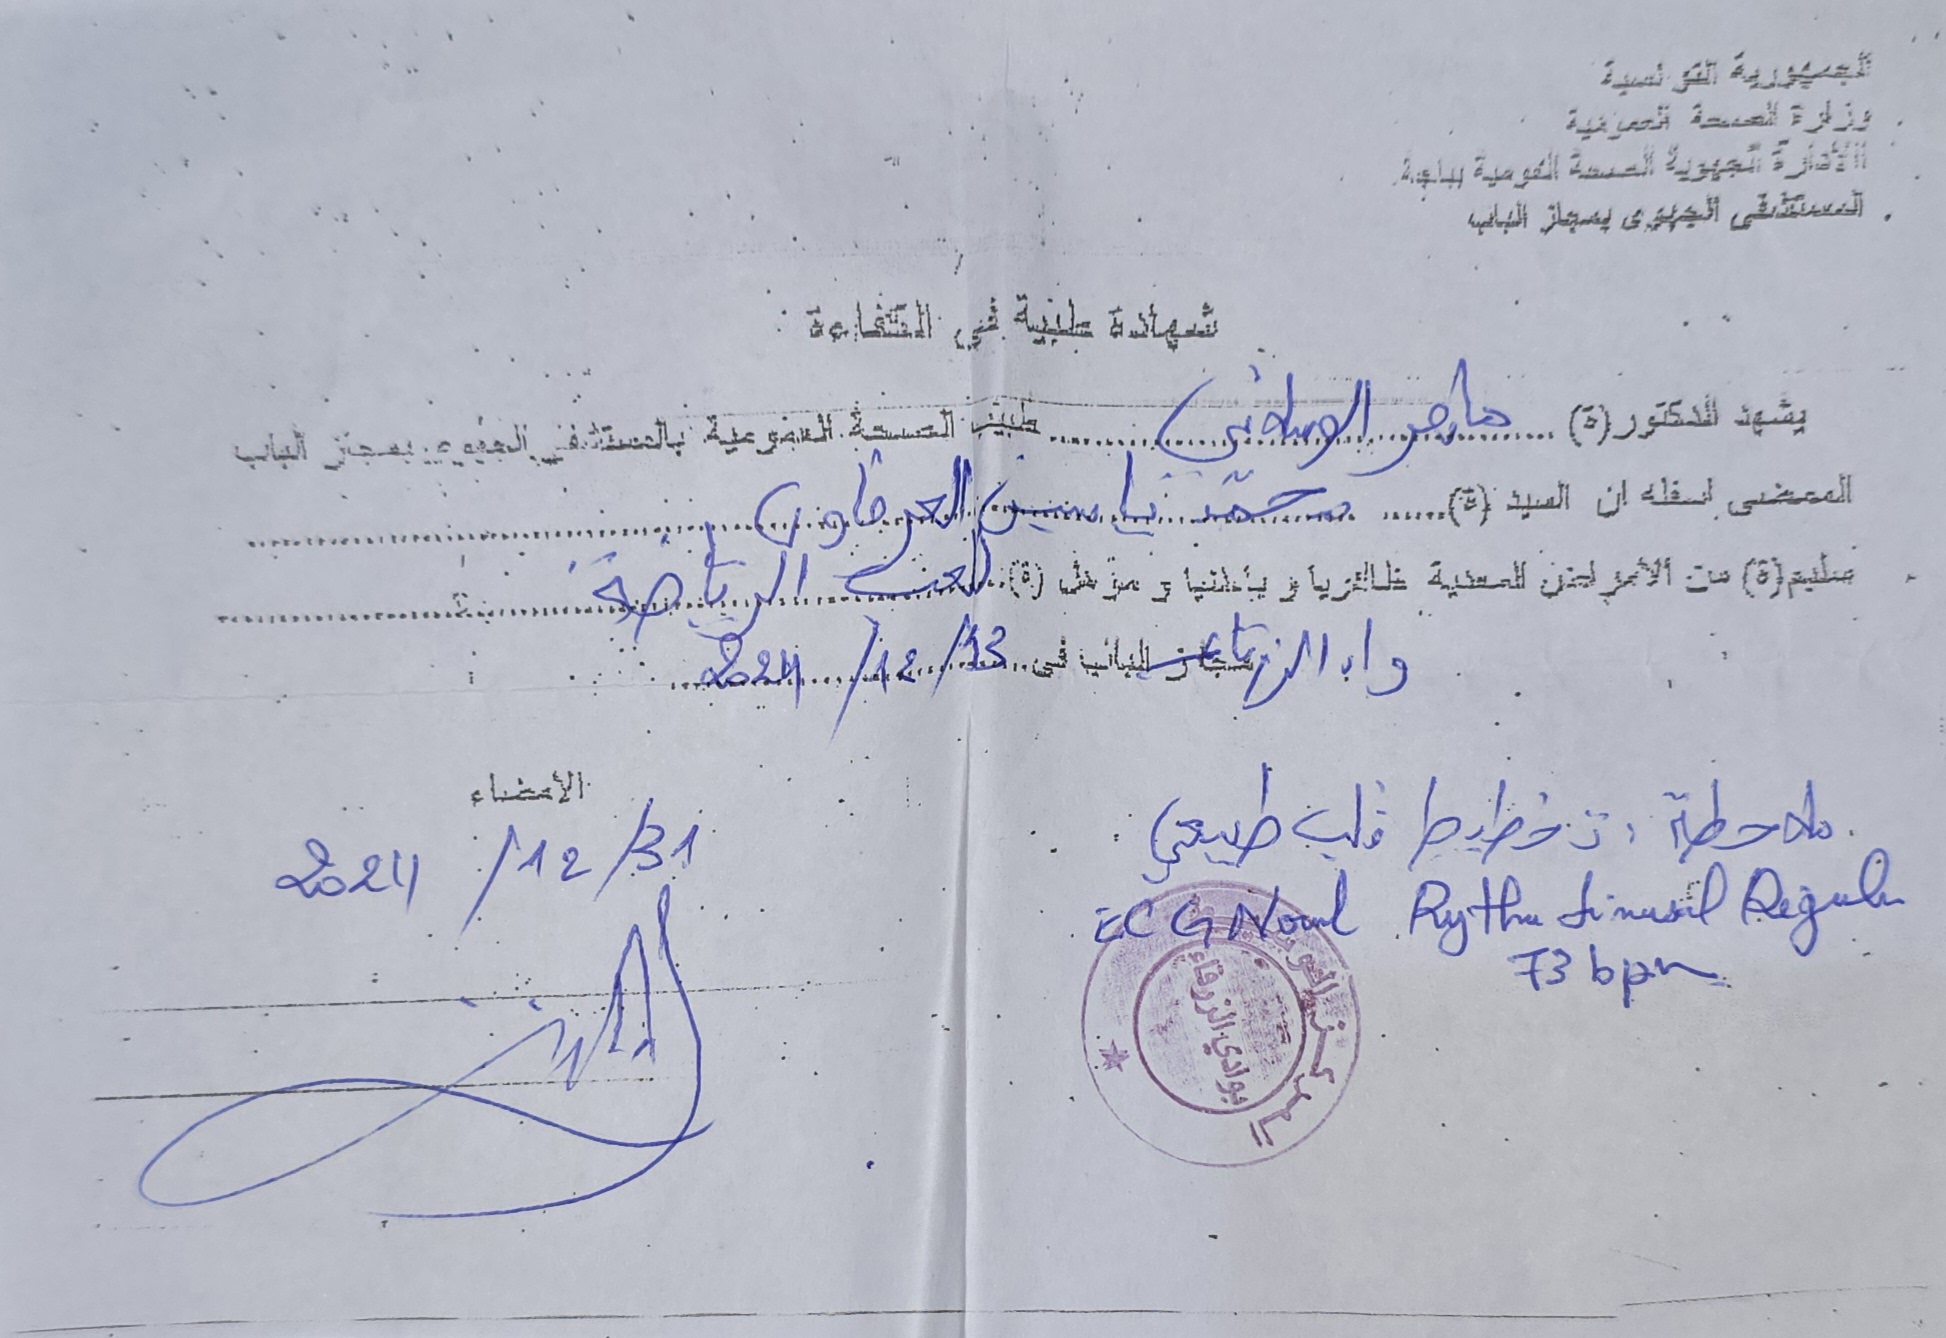 الجمهورية التونسية
وزارة الصحة العمومية
الادارة الجهوية للصحة العمومية بباجة
المستشفى الجهوي بمجاز الباب
شهادة طبية في الكفاءة
يشهد الدكتور(ة) ماهر الوسلاتي طبيب الصحة العمومية بالمستشفى الجهوي بمجاز الباب
الممضى اسفله ان السيد (ة) محمد ياسين العرفاوي
سليم(ة) من الأمراض المعدية ظاهريا و باطنيا و مؤهل (ة) لعب الرياضة
واد الزرقاء مجاز الباب في 2024/12/13
الأمضاء
2024/12/31
ملاحظة: تخطيط قلب طبيعي
ECG Normal Rythm sinusal Régulier
73 bpm
المركز
بوادي الزرقاء